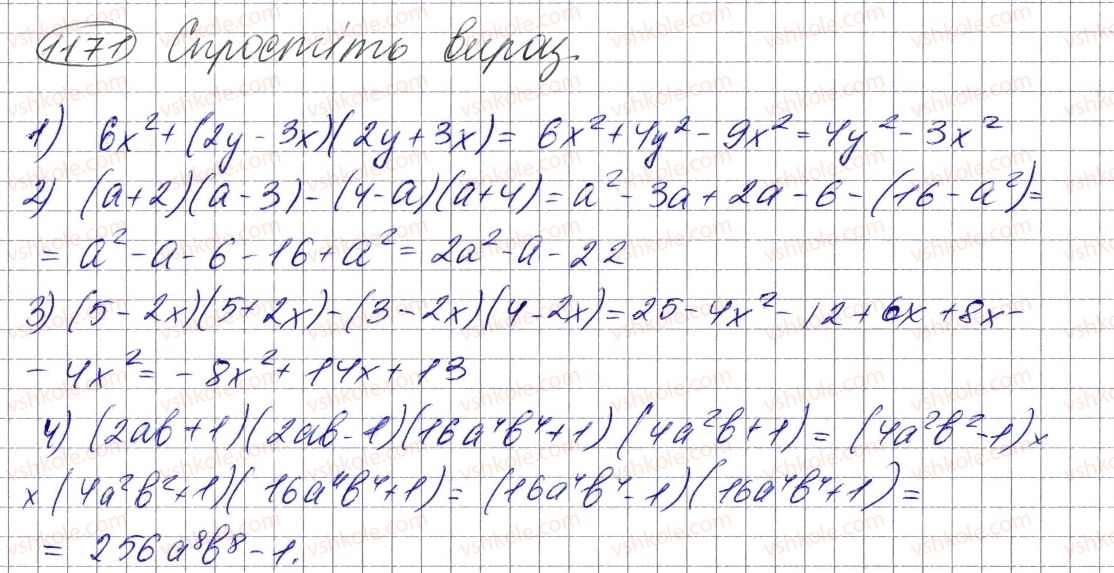 1171 Спростіть вираз.
1) 6x² + (2y - 3x)(2y + 3x) = 6x² + 4y² - 9x² = 4y² - 3x²
2) (a + 2)(a - 3) - (4 - a)(a + 4) = a² - 3a + 2a - 6 - (16 - a²) =
= a² - a - 6 - 16 + a² = 2a² - a - 22
3) (5 - 2x)(5 + 2x) - (3 - 2x)(4 - 2x) = 25 - 4x² - 12 + 6x + 8x -
- 4x² = - 8x² + 14x + 13
4) (2ab + 1)(2ab - 1)(16a⁴b⁴ + 1)(4a²b + 1) = (4a²b² - 1) ×
× (4a²b² + 1)(16a⁴b⁴ + 1) = (16a⁴b⁴ - 1)(16a⁴b⁴ + 1) =
= 256a⁸b⁸ - 1.